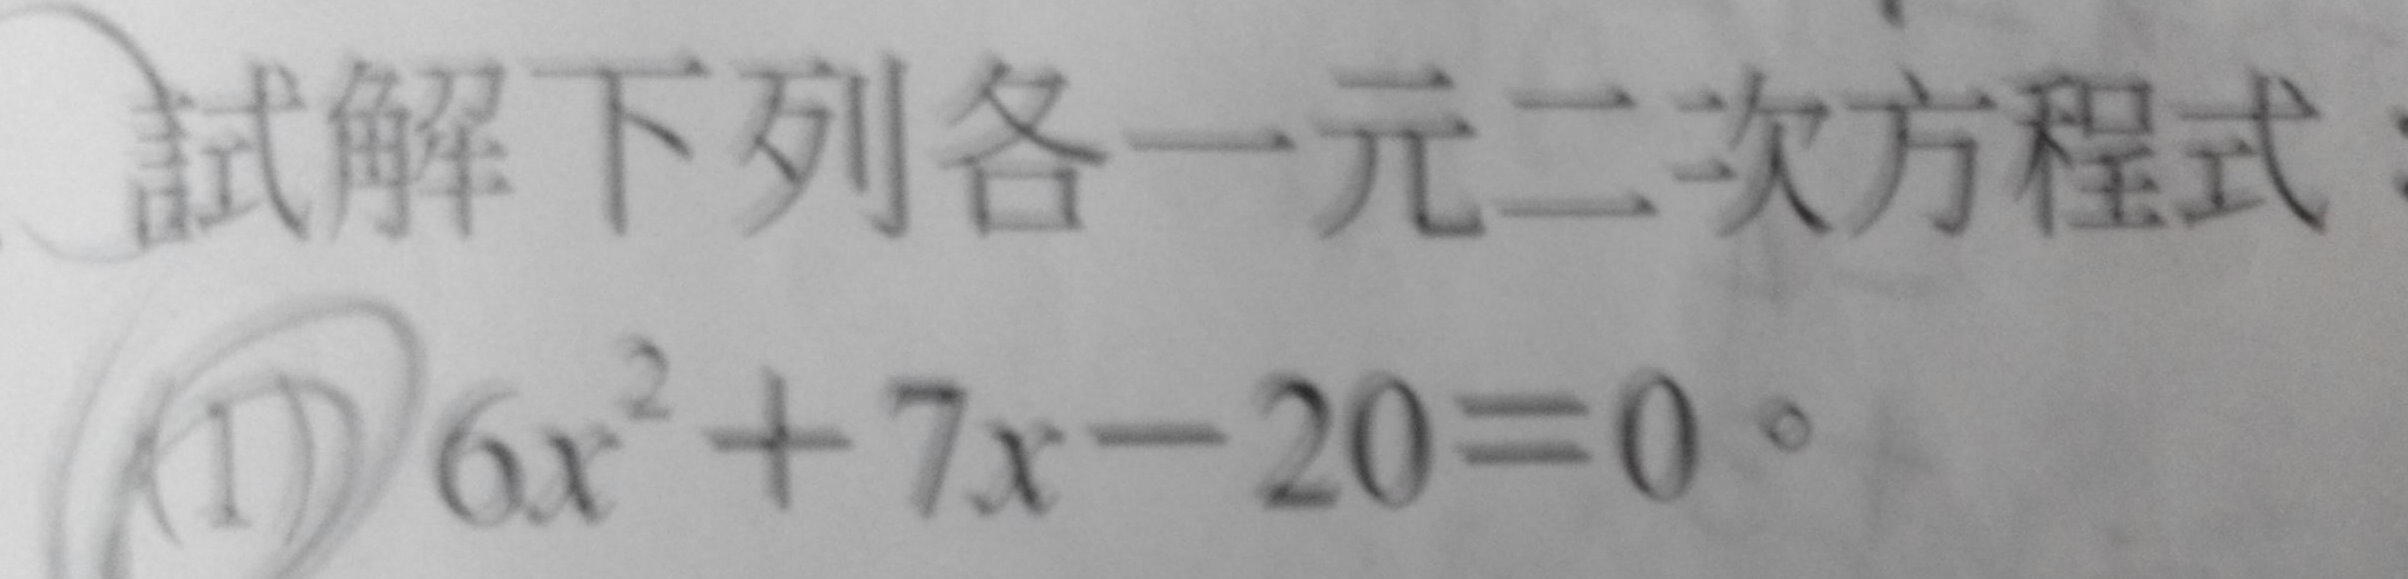 試解下列各一元二次方程式：
(1) 6x²＋7x－20＝0。